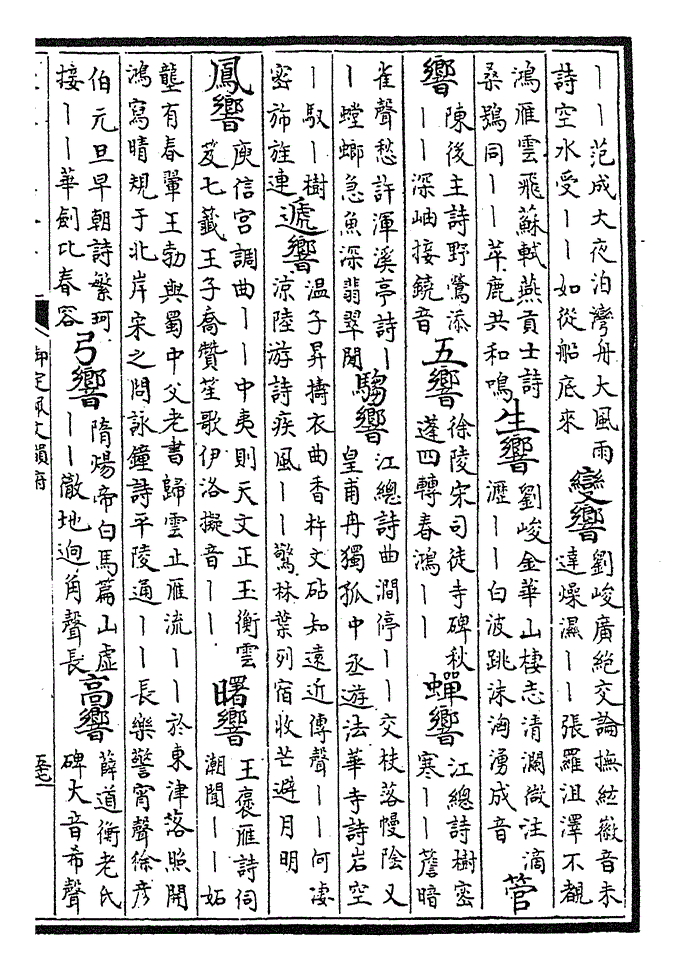 丨丨范成大夜泊灣舟大風雨
詩空水受丨丨如從船底來
變響
劉峻廣絶交論撫絃徽音未
達燥濕丨丨張羅沮澤不覩
鴻雁雲飛蘇軾燕貢士詩
桑鶚同丨丨苹鹿共和鳴
生響
劉峻金華山棲志清瀾微注滴
瀝丨丨白波跳沫洶湧成音
管
響
陳後主詩野鶯添
丨丨深岫接鐃音
五響
徐陵宋司徒寺碑秋
蓬四轉春鴻丨丨
蟬響
江總詩樹密
寒丨丨簷暗
雀聲愁許渾溪亭詩丨
丨螳螂急魚深翡翠閒
騶響
江總詩曲澗停丨丨交枝落幔陰又
皇甫冉獨孤中丞遊法華寺詩岩空
丨馭丨樹
密斾旌連
遞響
温子昇擣衣曲香杵文砧知遠近傳聲丨丨何凄
涼陸游詩疾風丨丨驚林葉列宿收芒避月明
鳳響
庾信宫調曲丨丨中夷則天文正玉衡雲
笈七籤王子喬贊笙歌伊洛擬音丨丨
曙響
王褒雁詩伺
潮聞丨丨妬
壟有春翬王勃與蜀中父老書歸雲止雁流丨丨於東津落照開
鴻寫晴規于北岸宋之問詠鐘詩平陵通丨丨長樂警宵聲徐彦
伯元旦早朝詩繁珂
接丨丨華劍比春容
弓響
隋煬帝白馬篇山虛
丨丨徹地迥角聲長
高響
薛道衡老氏
碑大音希聲
御定佩文韻府